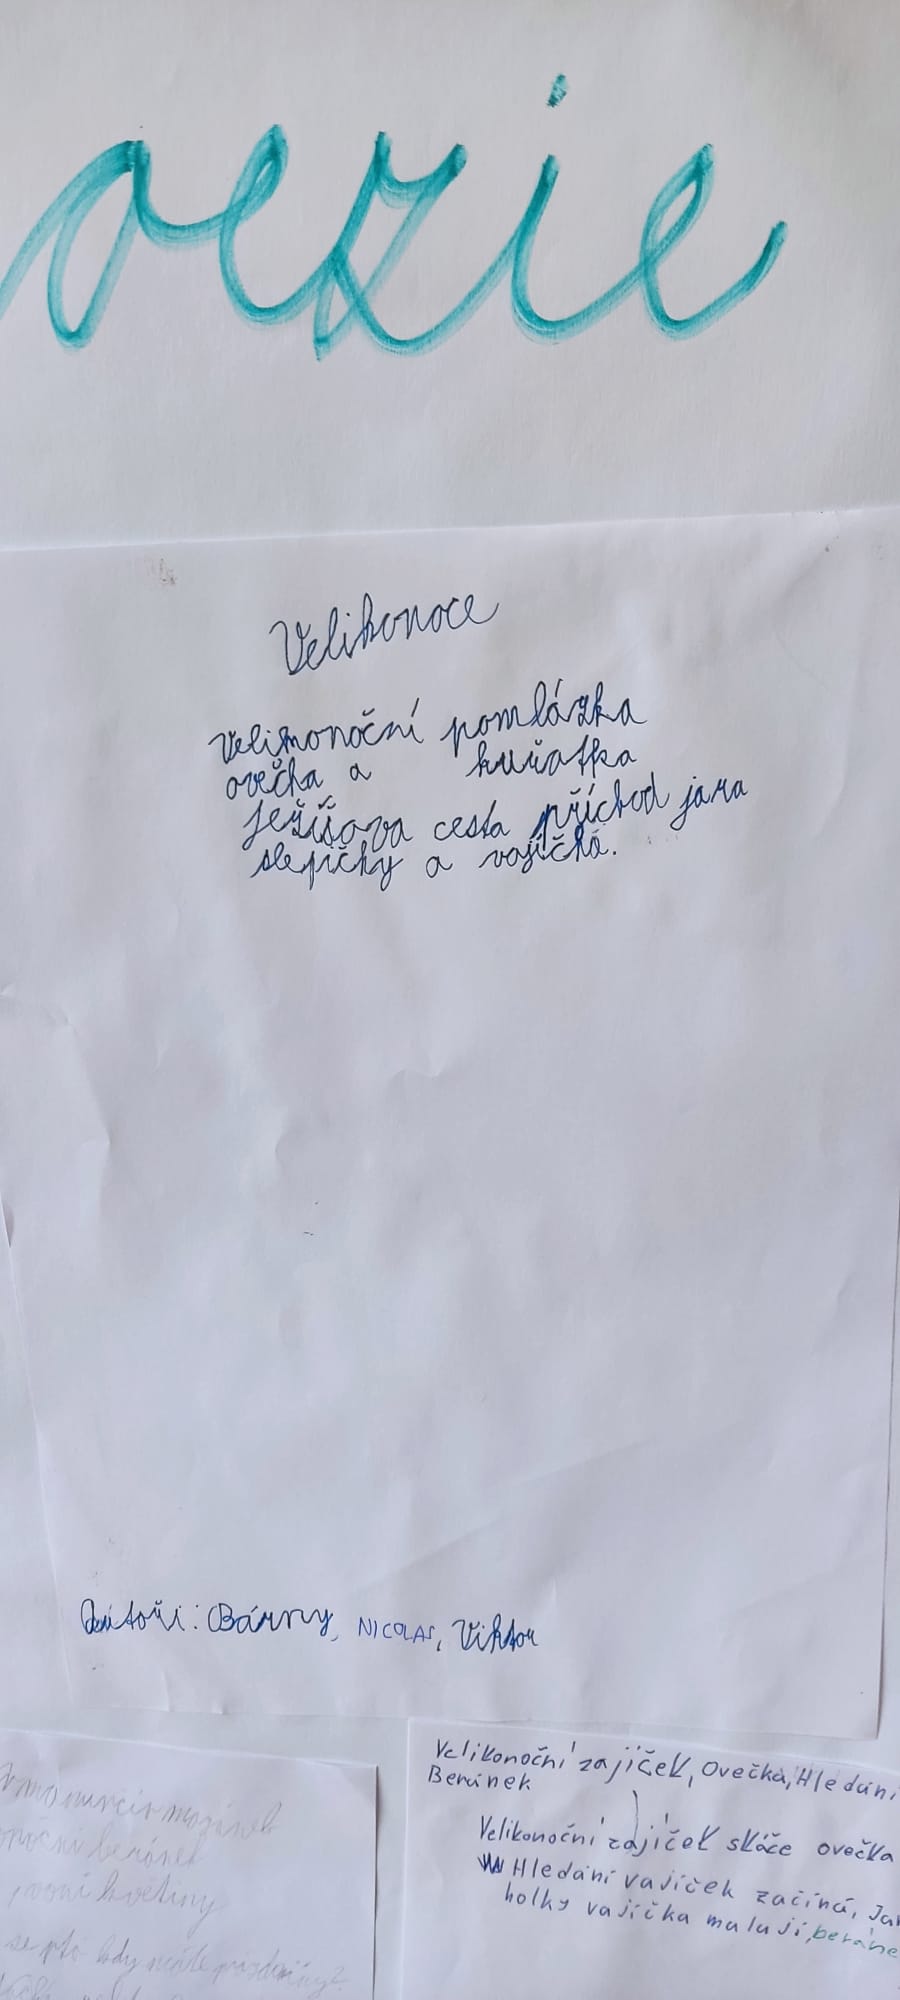 oezie
Velikonoce
Velikonoční pomlázka
ovečka a kuřatka
Ježíšova cesta příchod jara
slepičky a vajíčka.
Autoři: Bárny, NICOLAS, Viktor
Velikonoční zajíček, Ovečka, Hledání
Beránek
Velikonoční zajíček skáče ovečka
Hledání vajíček začíná, Jar
holky vajíčka malují, beráne
mazanec
beránek
první květiny
se pto kdy máte prázdniny?